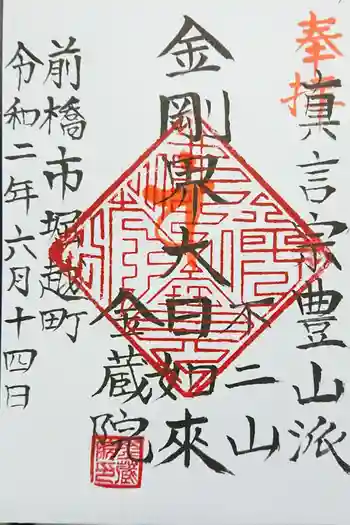 奉拝
真言宗豊山派
不二山
金剛界大日如來
金蔵院
前橋市堀越町
令和二年六月十四日